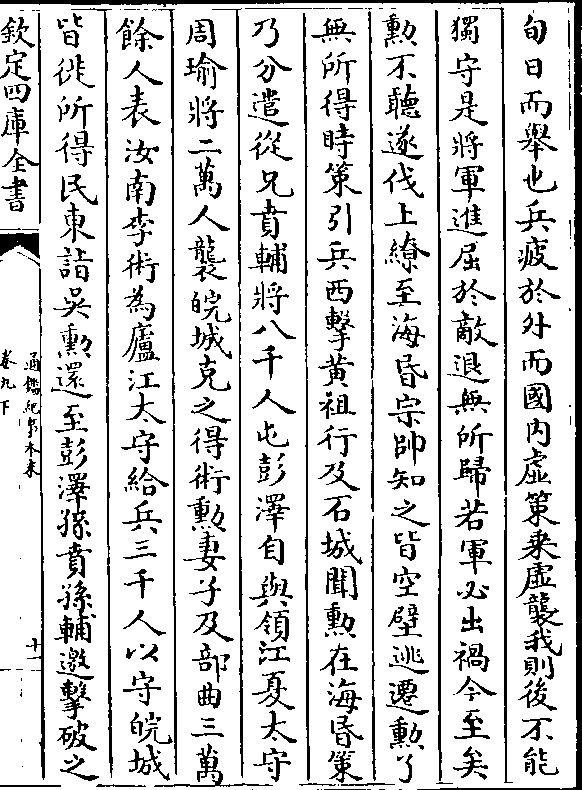 旬日而舉也兵疲於外而國内虛策乗虛襲我則後不能
獨守是將軍進屈於敵退無所歸若軍必出禍今至矣
勲不聽遂伐上繚至海昏宗帥知之皆空壁逃遷勲了
無所得時策引兵西擊黄祖行及石城聞勲在海昏策
乃分遣從兄賁輔將八千人屯彭澤自與領江夏太守
周瑜將二萬人襲皖城克之得術勲妻子及部曲三萬
餘人表汝南李術為廬江太守給兵三千人以守皖城
皆徙所得民東詣吳勲還至彭澤孫賁孫輔邀擊破之
欽定四庫全書
通鑑紀事本末
卷九下
十一